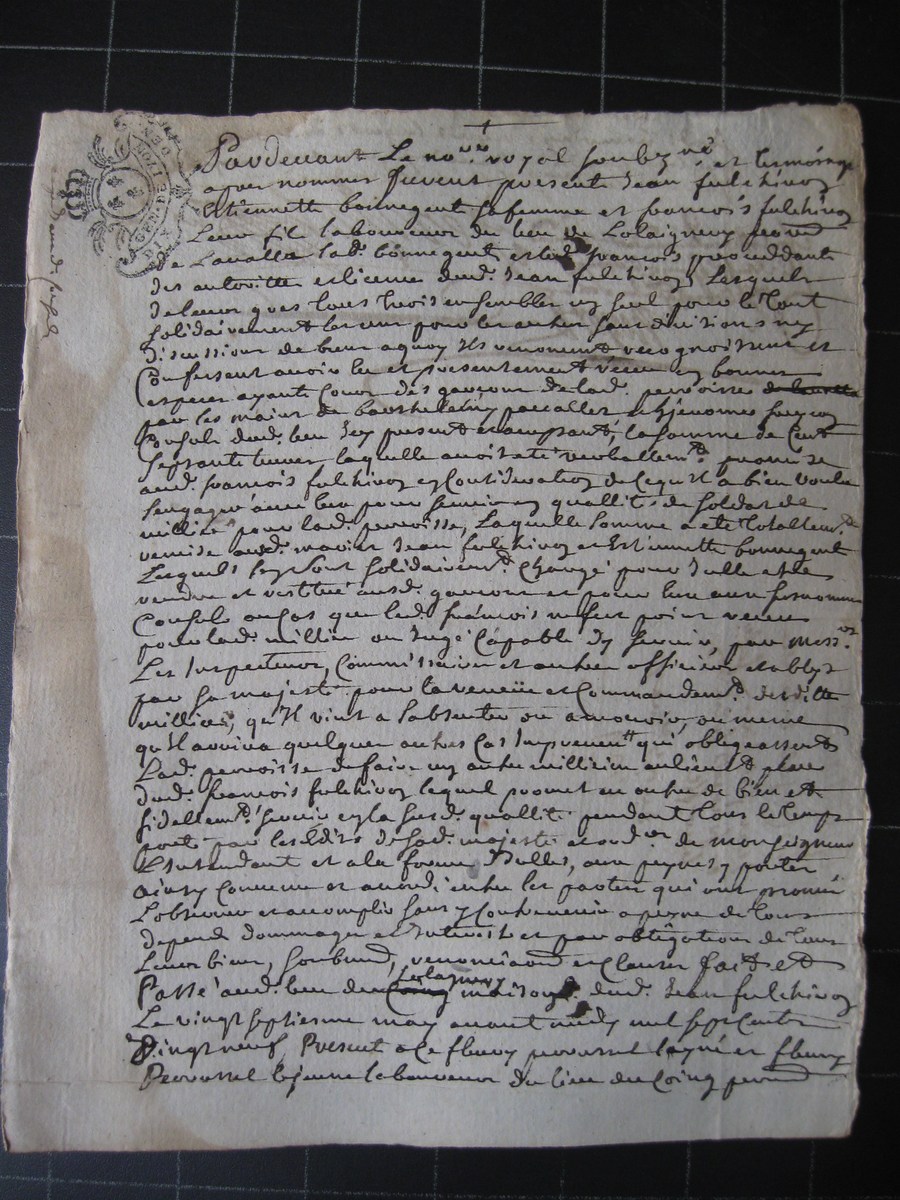 Pardevant Le no.re royal soubz.né et tesmoings
apres nommes furent presents Jean fulchiron
Estiennette bonnegent sa femme et francois fulchiron
Leur fil laboureur du lieu de Lolaigneux
de Lavalla lad. bonnegent et led. francois proceddants
des autoritte et licence dud. Jean fulchiron Lesquels
de leur gres tous trois ensembles un seul pour le tout
solidairement l'un pour les autres sans divisions ny
discussion de biens a quoy ils renoncent recognoissent et
Confessent avoir heu et presentement receu en bonnes
especes ayants Cours des garcons de lad. perroisse
par les mains de barthelemy pacallet et
Consuls dud. lieu Icy presents et acceptants, la somme de Cent
septante livres laquelle avoit été verballem.t promise
aud. francois fulchiron en Consideration de ce qu'il a bien voulu
sengager pour servir en quallité de soldat de
millice pour lad. perroisse, Laquelle somme a été totallem.t
remise auxd. mariez Jean fulchiron et Estiennette bonnegent
Lesquels se sont solidairem.t Chargé pour Icelle estre
rendue et restituée auxd. garcons et pour eux aux susnommes
Consuls au Cas que led. francois ne fut point receu
pour lad. millice ou Jugé Capable d'y servir, par mess.rs
Les Inspecteurs, Commissaires et autres officiers etablys
par sa majesté pour la reveüe et Commandem.t desditte
millices, qu'il vint a s'absenter ou a mourir, ou meme
qu'il arriva quelques autres Cas Imprevus qui obligeassent
Lad. perroisse de faire un autre millicien au lieu et place
dud. francois fulchiron lequel promet en outre de bien et
fidellem.t servir en la susd. quallité pendant tous le temps
porté par les Edits de sad. majesté et ord.ces de monseigneur
L'Intendant et a la forme d'Icelles, aux peynes y portées
ainsy Convenu et accordé entre les parties qui ont promis
L'observer et accomplir sans y Contrevenir a peyne de tous
depends dommages et Interests et par obligations de tous
Leurs biens, soubmis.s, renonciaons et Clauses fait et
Passé aud. lieu de Lolagneux maison dud. Jean fulchiron
Le vingt septiesme may avant midy mil sept Cents
Vingt neuf, Present a Ce fleury perrussel layné et fleury
Perrussel le jeune laboureurs du lieu du Coing